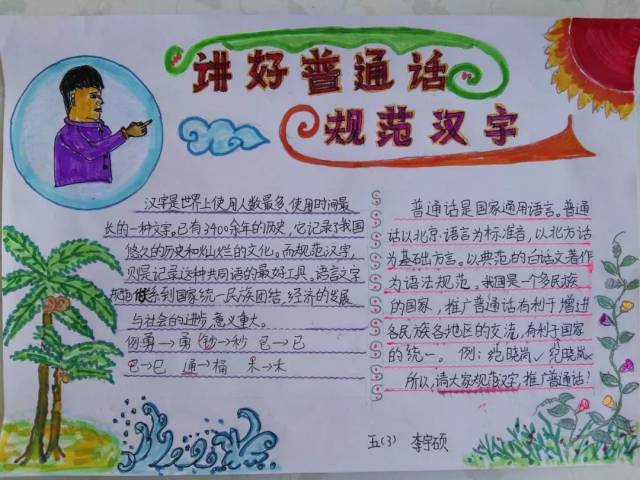 讲好普通话
规范汉字
汉字是世界上使用人数最多、使用时间最
长的一种文字。已有3400余年的历史，它记录了我国
悠久的历史和灿烂的文化。而规范汉字，
则是记录这种共同语的最好工具，语言文字
规范 关系到国家统一民族团结，经济的发展
与社会的进步，意义重大。
例：勇→勇 钞→秒 已→已
巳→巳 通→桶 木→禾
普通话是国家通用语言。普通
话以北京语言为标准音，以北方话
为基础方言。以典范的白话文著作
为语法规范。我国是一个多民族
的国家，推广普通话有利于增进
各民族各地区的交流，有利于国家
的统一。 例：晓岚√ 晓岚×
所以，请大家规范汉字，推广普通话！
五(3) 李宇硕